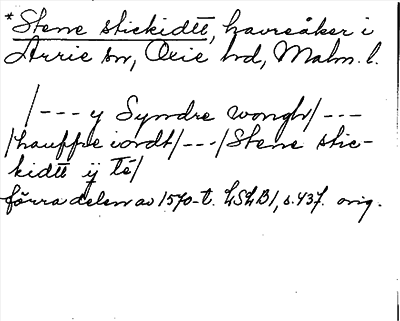 * Stene stickidtt, havreåker i
Arrie sn, Oxie hd, Malm. l.
/--- y Syndre wongh/---
/hauffre iordt/---/Stene stic-
kidtt ij té/
förra delen av 1570-t. LSLB1, s. 437. orig.